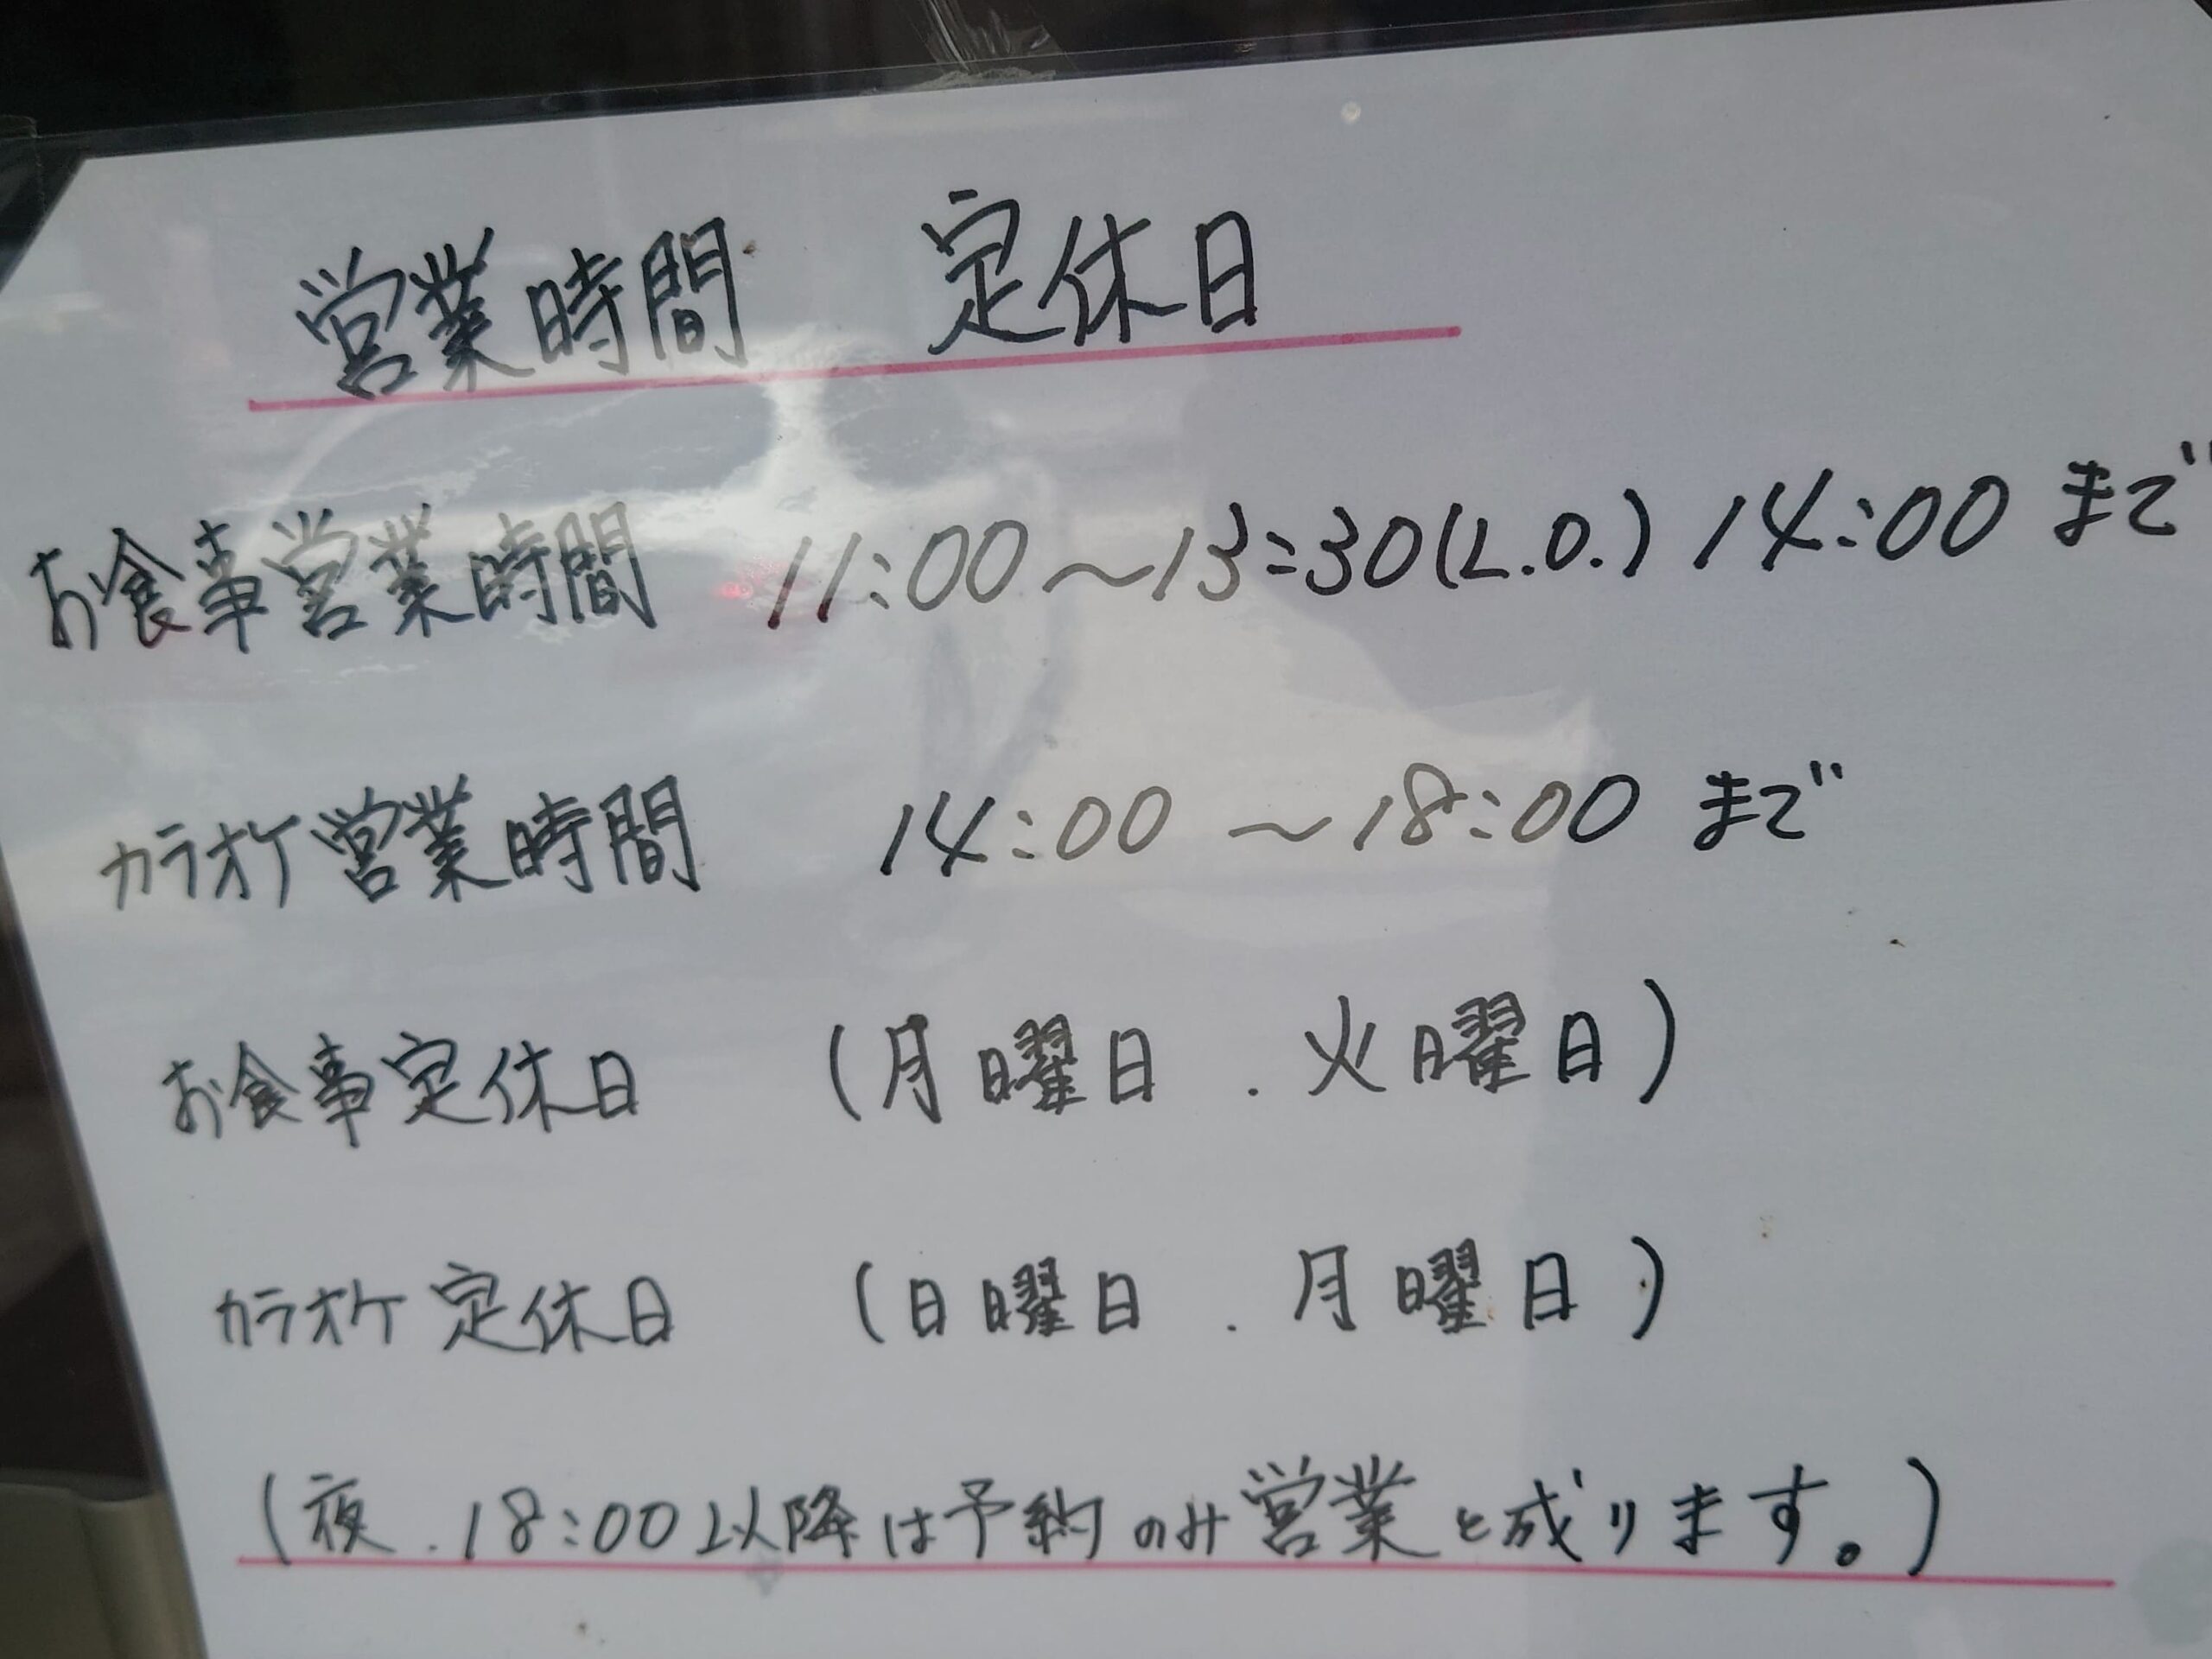 営業時間　定休日
お食事営業時間　11:00～13:30(L.O.) 14:00 まで
カラオケ営業時間　14:00 ～18:00 まで
お食事定休日　(月曜日 . 火曜日)
カラオケ定休日　(日曜日 . 月曜日)
(夜.18:00以降は予約のみ営業と成ります。)